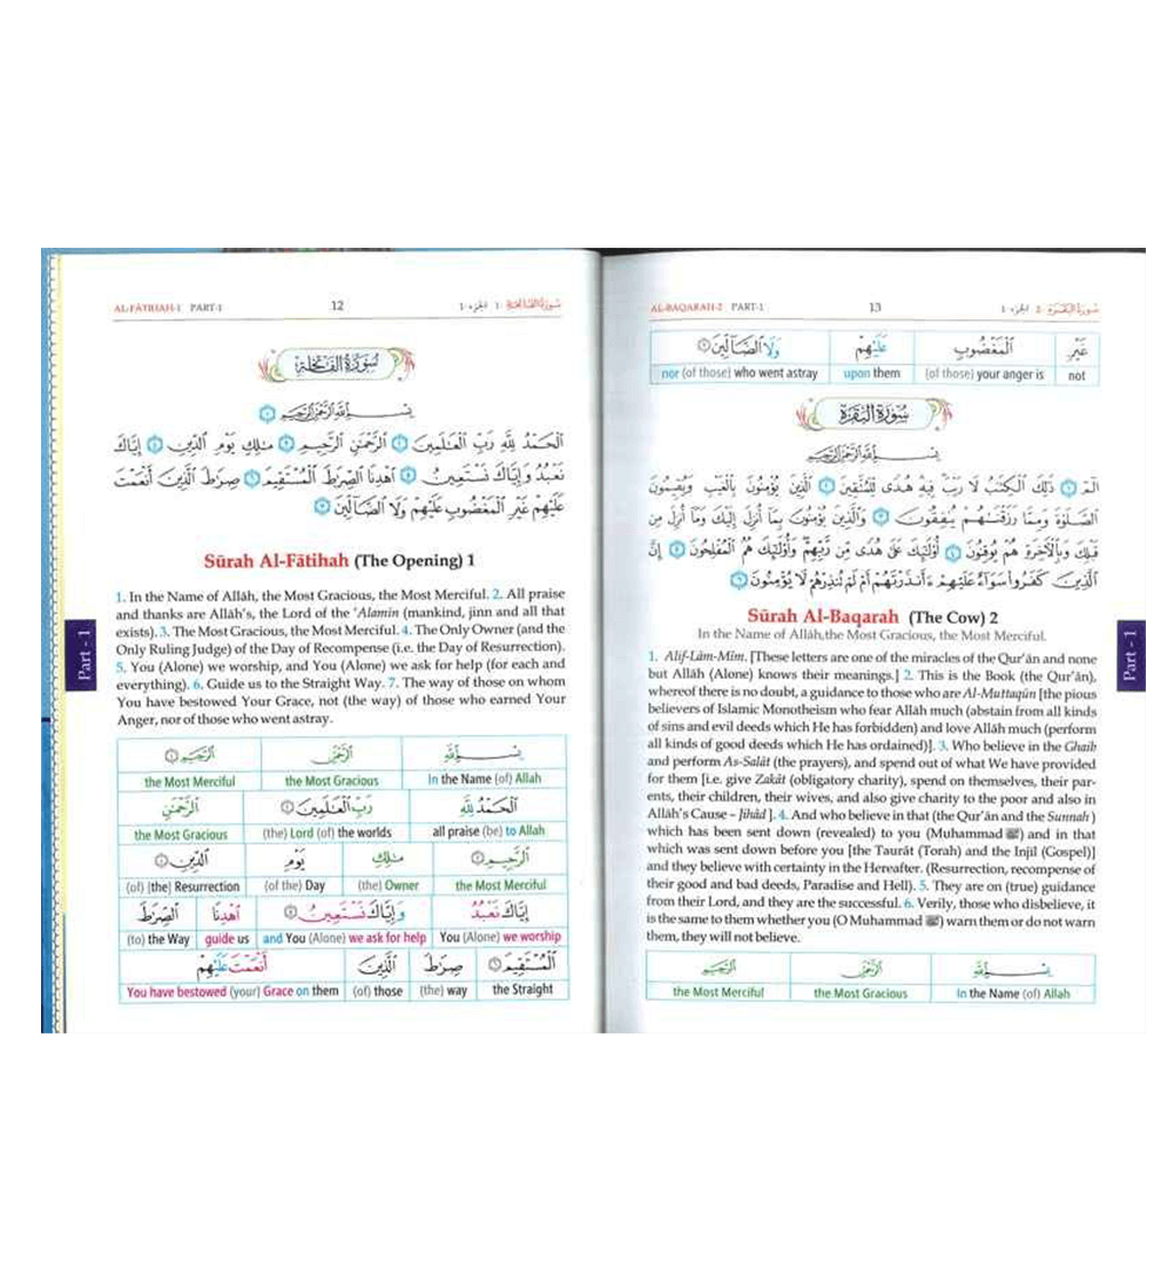 AL-FĀTIHAH-1 PART-1 12 سورة الفاتحة ١ الجزء ١
سُورَةُ الفَاتِحَةِ
بِسْمِ ٱللَّهِ ٱلرَّحْمَٰنِ ٱلرَّحِيمِ ١
ٱلْحَمْدُ لِلَّهِ رَبِّ ٱلْعَٰلَمِينَ ٢ ٱلرَّحْمَٰنِ ٱلرَّحِيمِ ٣ مَٰلِكِ يَوْمِ ٱلدِّينِ ٤ إِيَّاكَ
نَعْبُدُ وَإِيَّاكَ نَسْتَعِينُ ٥ ٱهْدِنَا ٱلصِّرَٰطَ ٱلْمُسْتَقِيمَ ٦ صِرَٰطَ ٱلَّذِينَ أَنْعَمْتَ
عَلَيْهِمْ غَيْرِ ٱلْمَغْضُوبِ عَلَيْهِمْ وَلَا ٱلضَّآلِّينَ ٧
Sūrah Al-Fātihah (The Opening) 1
1. In the Name of Allāh, the Most Gracious, the Most Merciful. 2. All praise
and thanks are Allāh's, the Lord of the 'Alamin (mankind, jinn and all that
exists). 3. The Most Gracious, the Most Merciful. 4. The Only Owner (and the
Only Ruling Judge) of the Day of Recompense (i.e. the Day of Resurrection).
5. You (Alone) we worship, and You (Alone) we ask for help (for each and
everything). 6. Guide us to the Straight Way. 7. The way of those on whom
You have bestowed Your Grace, not (the way) of those who earned Your
Anger, nor of those who went astray.
بِسْمِ ٱللَّهِ ٱلرَّحْمَٰنِ ٱلرَّحِيمِ ١
the Most Merciful the Most Gracious In the Name (of) Allah
ٱلْحَمْدُ لِلَّهِ رَبِّ ٱلْعَٰلَمِينَ ٢ ٱلرَّحْمَٰنِ
the Most Gracious (the) Lord (of) the worlds all praise (be) to Allah
ٱلرَّحِيمِ ٣ مَٰلِكِ يَوْمِ ٱلدِّينِ ٤
(of) [the] Resurrection (of the) Day (the) Owner the Most Merciful
إِيَّاكَ نَعْبُدُ وَإِيَّاكَ نَسْتَعِينُ ٥ ٱهْدِنَا ٱلصِّرَٰطَ
(to) the Way guide us and You (Alone) we ask for help You (Alone) we worship
ٱلْمُسْتَقِيمَ ٦ صِرَٰطَ ٱلَّذِينَ أَنْعَمْتَ عَلَيْهِمْ
You have bestowed (your) Grace on them (of) those (the) way the Straight
Part - 1
AL-BAQARAH-2 PART-1 13 سورة البقرة 2 الجزء ١
غَيْرِ ٱلْمَغْضُوبِ عَلَيْهِمْ وَلَا ٱلضَّآلِّينَ ٧
nor (of those) who went astray upon them (of those) your anger is not
سُورَةُ البَقَرَةِ
بِسْمِ ٱللَّهِ ٱلرَّحْمَٰنِ ٱلرَّحِيمِ
الٓمٓ ١ ذَٰلِكَ ٱلْكِتَٰبُ لَا رَيْبَ فِيهِ هُدًى لِّلْمُتَّقِينَ ٢ ٱلَّذِينَ يُؤْمِنُونَ بِٱلْغَيْبِ وَيُقِيمُونَ
ٱلصَّلَوٰةَ وَمِمَّا رَزَقْنَٰهُمْ يُنفِقُونَ ٣ وَٱلَّذِينَ يُؤْمِنُونَ بِمَآ أُنزِلَ إِلَيْكَ وَمَآ أُنزِلَ مِن
قَبْلِكَ وَبِٱلْءَاخِرَةِ هُمْ يُوقِنُونَ ٤ أُو۟لَٰٓئِكَ عَلَىٰ هُدًى مِّن رَّبِّهِمْ وَأُو۟لَٰٓئِكَ هُمُ ٱلْمُفْلِحُونَ ٥ إِنَّ
ٱلَّذِينَ كَفَرُوا۟ سَوَآءٌ عَلَيْهِمْ ءَأَنذَرْتَهُمْ أَمْ لَمْ تُنذِرْهُمْ لَا يُؤْمِنُونَ ٦
Sūrah Al-Baqarah (The Cow) 2
In the Name of Allāh,the Most Gracious, the Most Merciful.
1. Alif-Lām-Mīm. [These letters are one of the miracles of the Qur'ān and none
but Allāh (Alone) knows their meanings.] 2. This is the Book (the Qur'ān),
whereof there is no doubt, a guidance to those who are Al-Muttaqūn [the pious
believers of Islamic Monotheism who fear Allāh much (abstain from all kinds
of sins and evil deeds which He has forbidden) and love Allāh much (perform
all kinds of good deeds which He has ordained)]. 3. Who believe in the Ghaib
and perform As-Salāt (the prayers), and spend out of what We have provided
for them [i.e. give Zakāt (obligatory charity), spend on themselves, their par-
ents, their children, their wives, and also give charity to the poor and also in
Allāh's Cause – Jihād]. 4. And who believe in that (the Qur'ān and the Sunnah)
which has been sent down (revealed) to you (Muhammad ﷺ) and in that
which was sent down before you [the Taurāt (Torah) and the Injīl (Gospel)]
and they believe with certainty in the Hereafter. (Resurrection, recompense of
their good and bad deeds, Paradise and Hell). 5. They are on (true) guidance
from their Lord, and they are the successful. 6. Verily, those who disbelieve, it
is the same to them whether you (O Muhammad ﷺ) warn them or do not warn
them, they will not believe.
بِسْمِ ٱللَّهِ ٱلرَّحْمَٰنِ ٱلرَّحِيمِ
the Most Merciful the Most Gracious In the Name (of) Allah
Part - 1